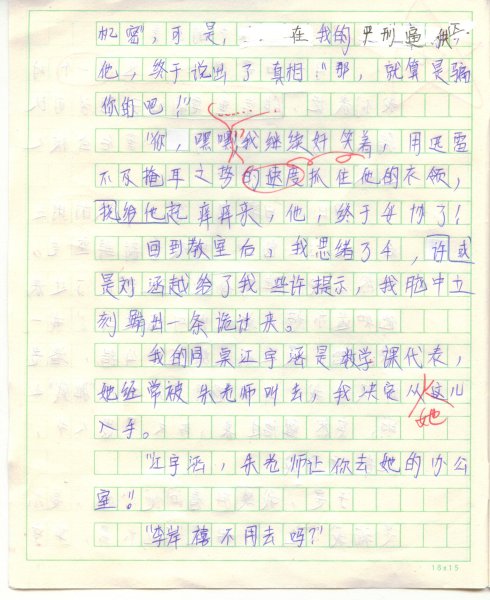 机密，可是，在我的严刑逼供下
他，终于说出了真相："那，就算是骗
你的吧！"
"你，嘿嘿"我继续奸笑着，用迅雷
不及掩耳之势的速度抓住他的衣领，
把给他起弄弄来，他，终于妥协了！
回到教室后，我思绪了4，许或
是刘涵越给了我些许提示，我脑中立
刻蹦出一条诡计来。
我的同桌江宇涵是数学课代表，
她经常被朱老师叫去，我决定从这儿
她
入手。
"江宇涵，朱老师让你去她的办公
室！"
"李岸禧不用去吗？"
18x15